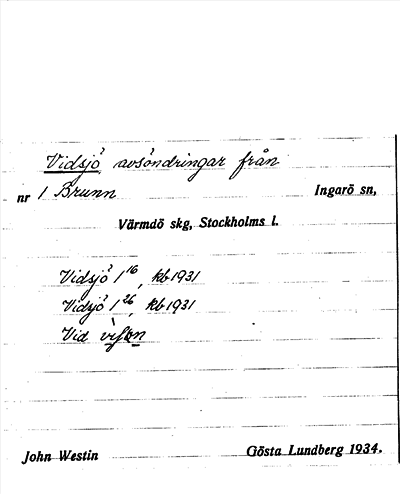 Vidsjö, avsöndringar från
nr 1 Brunn Ingarö sn,
Värmdö skg, Stockholms l.
Vidsjö 1 16, kb 1931
Vidsjö 1 26, kb 1931
Vid
John Westin Gösta Lundberg 1934.